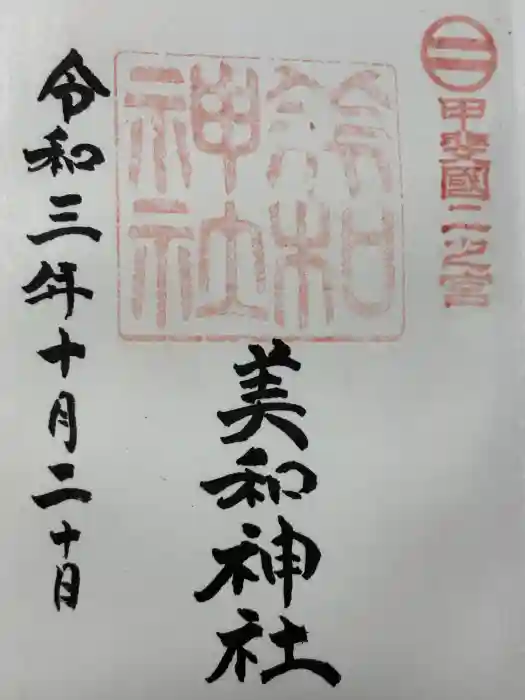 甲斐國二之宮
美和神社
令和三年十月二十日